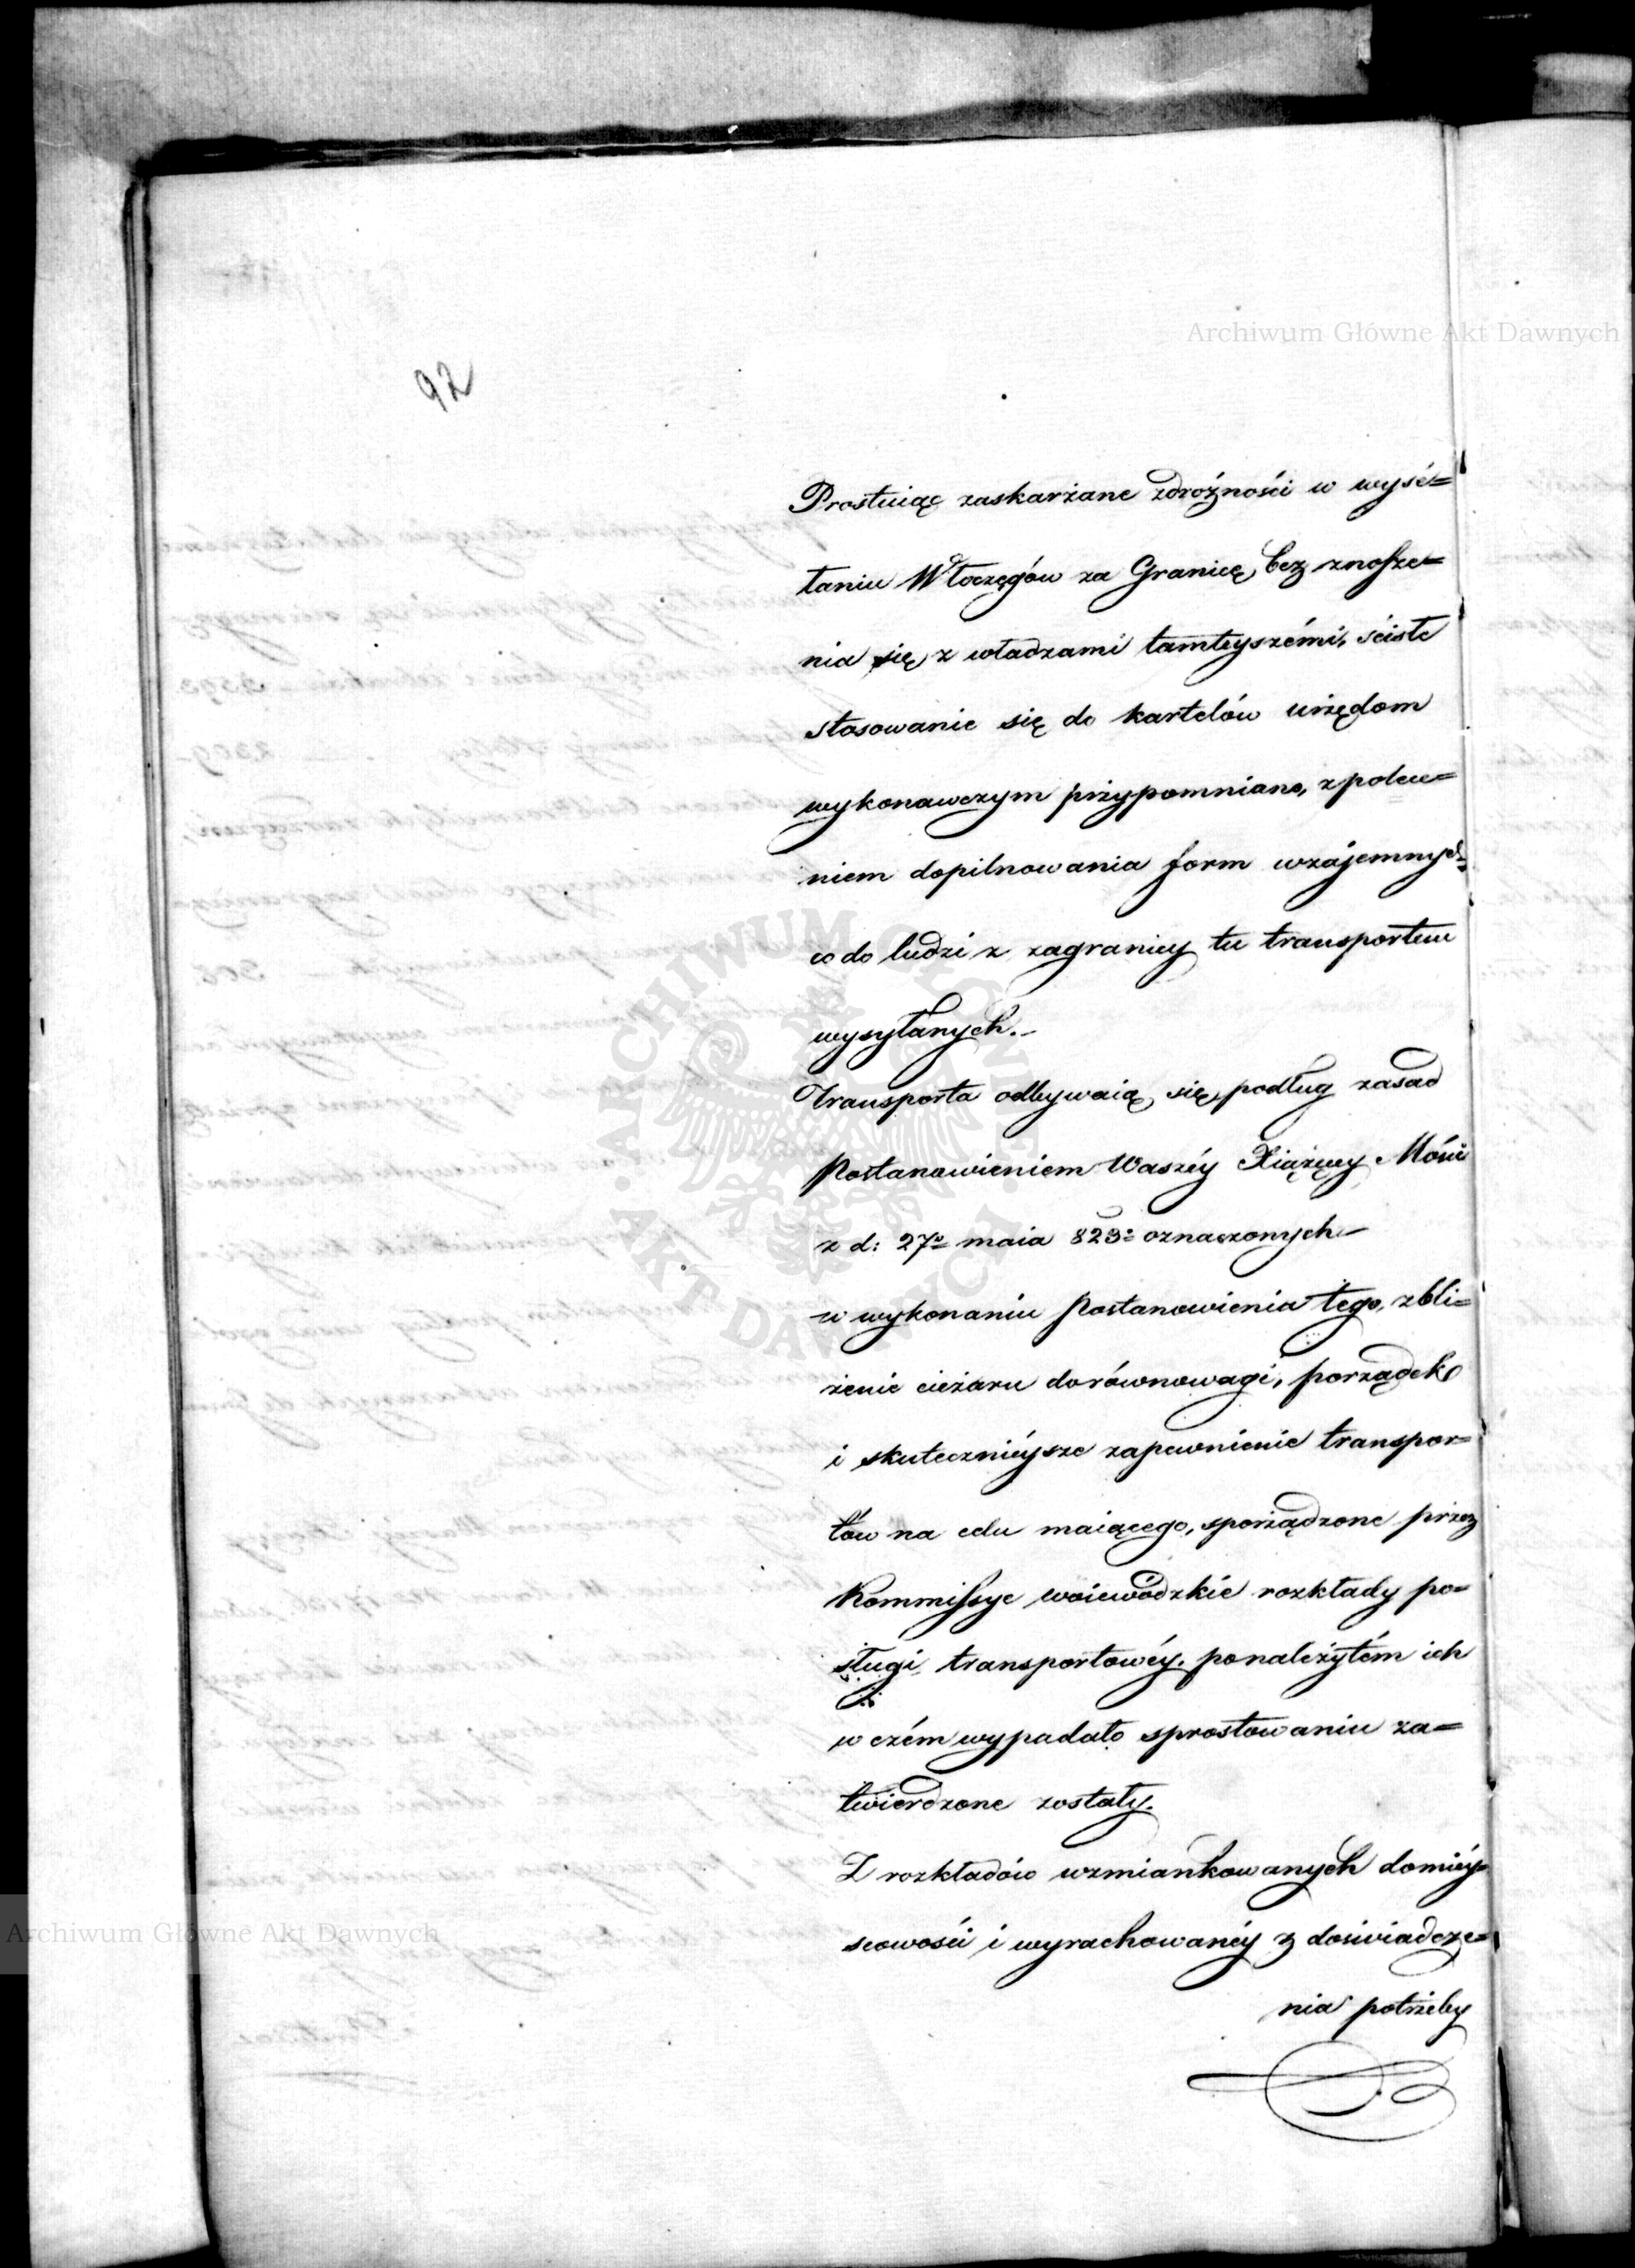 92
Archiwum Główne Akt Dawnych
Prostuiąc zaskarżane zdróżności w wysé=
łaniu Włoczęgów za Granicę, bez znosze=
nia się z władzami tamteyszémi, ściste
stosowanie się do kartelów urzędom
wykonawczym przypomniano, z polece=
niem dopilnowania form wzájemnych
co do ludzi z zagranicy tu transportem
wysyłanych.
Transporta odbywaią się podług zasad
Postanowieniem Waszéy Xiążęcey Mości
z d: 27º maia 823º oznaczonych
w wykonaniu Postanowienia tego, zbli=
żenie ciężaru do równowagi, porządek
i skutecznieysze zapewnienie transpor=
tów na celu maiącego, sporządzone przez
Kommissye woiewódzkie rozkłady po=
sługi transportowéy, po należytém ich
w czém wypadało sprostowaniu za=
twierdzone zostały.
Z rozkładów wzmiankowanych do miéy=
scowości i wyrachowanéy z doświadcze=
nia potrzeby
ARCHIWUM GŁÓWNE AKT DAWNYCH
Archiwum Główne Akt Dawnych